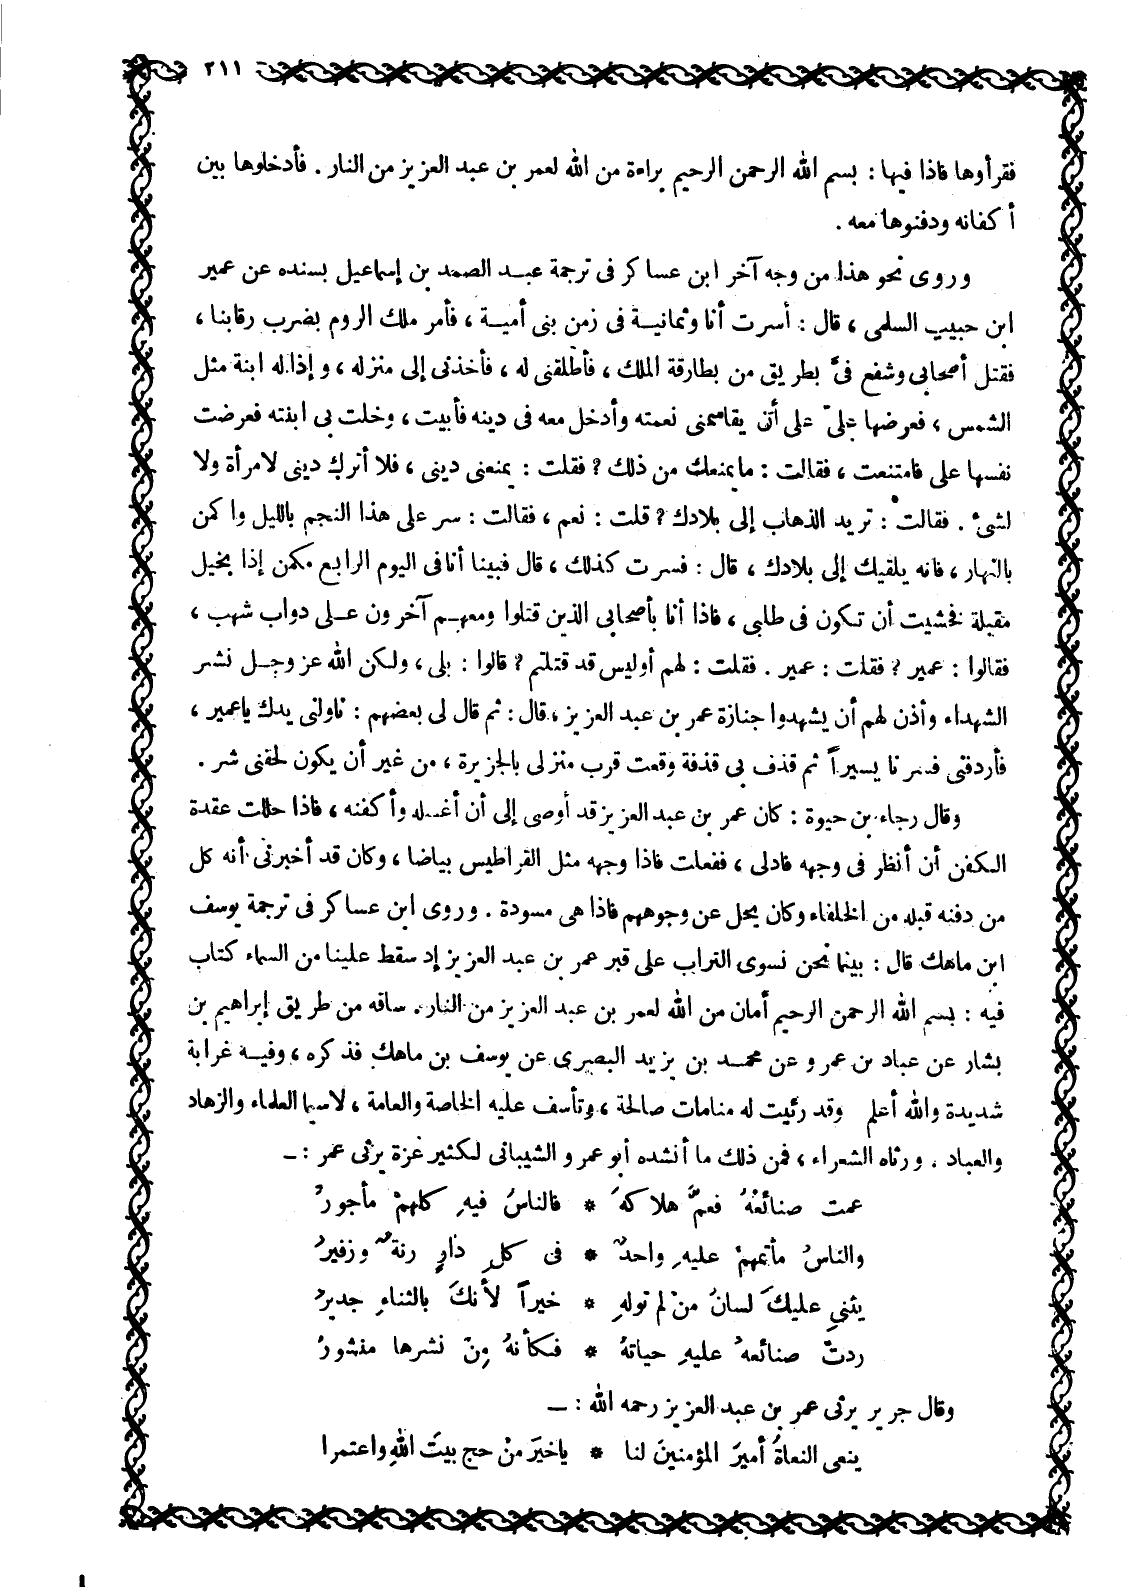 ٢١١
فقرأوها فاذا فيها : بسم الله الرحمن الرحيم براءة من الله لعمر بن عبد العزيز من النار . فأدخلوها بين
أكفانه ودفنوها معه .
وروى نحو هذا من وجه آخر ابن عساكر فى ترجمة عبد الصمد بن إسماعيل بسنده عن عمير
ابن حبيب السلمى ، قال : أسرت أنا وثمانية فى زمن بنى أمية ، فأمر ملك الروم بضرب رقابنا ،
فقتل أصحابى وشفع فىَّ بطريق من بطارقة الملك ، فأطلقنى له ، فأخذنى إلى منزله ، وإذا له ابنة مثل
الشمس ، فعرضها علىّ على أن يقاسمنى نعمته وأدخل معه فى دينه فأبيت ، وخلت بى ابنته فعرضت
نفسها على فامتنعت ، فقالت : ما يمنعك من ذلك ? فقلت : يمنعنى دينى ، فلا أترك دينى لامرأة ولا
لشىء . فقالت : تريد الذهاب إلى بلادك ? قلت : نعم ، فقالت : سر على هذا النجم بالليل واكمن
بالنهار ، فانه يلقيك إلى بلادك ، قال : فسرت كذلك ، قال فبينا أنا فى اليوم الرابع مكمن إذا بخيل
مقبلة فخشيت أن تكون فى طلبى ، فاذا أنا بأصحابى الذين قتلوا ومعهم آخرون على دواب شهب ،
فقالوا : عمير ? فقلت : عمير . فقلت : لهم أوليس قد قتلتم ? قالوا : بلى ، ولكن الله عز وجل نشر
الشهداء وأذن لهم أن يشهدوا جنازة عمر بن عبد العزيز ، قال : ثم قال لى بعضهم : ناولنى يدك ياعمير ،
فأردفنى فسرنا يسيراً ثم قذف بى قذفة وقعت قرب منزلى بالجزيرة ، من غير أن يكون لحقنى شر .
وقال رجاء بن حيوة : كان عمر بن عبد العزيز قد أوصى إلى أن أغسله وأكفنه ، فاذا حللت عقدة
الكفن أن أنظر فى وجهه فادلى ، ففعلت فاذا وجهه مثل القراطيس بياضا ، وكان قد أخبرنى أنه كل
من دفنه قبله من الخلفاء وكان يحل عن وجوههم فاذا هى مسودة . وروى ابن عساكر فى ترجمة يوسف
ابن ماهك قال : بينما نحن نسوى التراب على قبر عمر بن عبد العزيز إذ سقط علينا من السماء كتاب
فيه : بسم الله الرحمن الرحيم أمان من الله لعمر بن عبد العزيز من النار . ساقه من طريق إبراهيم بن
بشار عن عباد بن عمرو عن محمد بن يزيد البصرى عن يوسف بن ماهك فذكره ، وفيه غرابة
شديدة والله أعلم وقد رئيت له منامات صالحة ، وتأسف عليه الخاصة والعامة ، لاسيما العلماء والزهاد
والعباد . ورثاه الشعراء ، فمن ذلك ما أنشده أبو عمرو الشيبانى لكثير عزة يرثى عمر : ــ
عمت صنائعُهُ فعمَّ هلاكهَ * فالناسُ فيهِ كلهمْ مأجورُ
والناسُ مأتمهمْ عليهِ واحدٌ * فى كلِ دارٍ رنةٌ وزفيرُ
يثنى عليكَ لسانُ منْ لم تولهِ * خيراً لأنكَ بالثناءِ جديرُ
ردتْ صنائعهُ عليهِ حياتهُ * فكأنهُ منْ نشرها منشورُ
وقال جرير يرثى عمر بن عبد العزيز رحمه الله : ــ
ينعى النعاةُ أميرَ المؤمنينَ لنا * ياخيرَ منْ حج بيتَ اللهِ واعتمرا